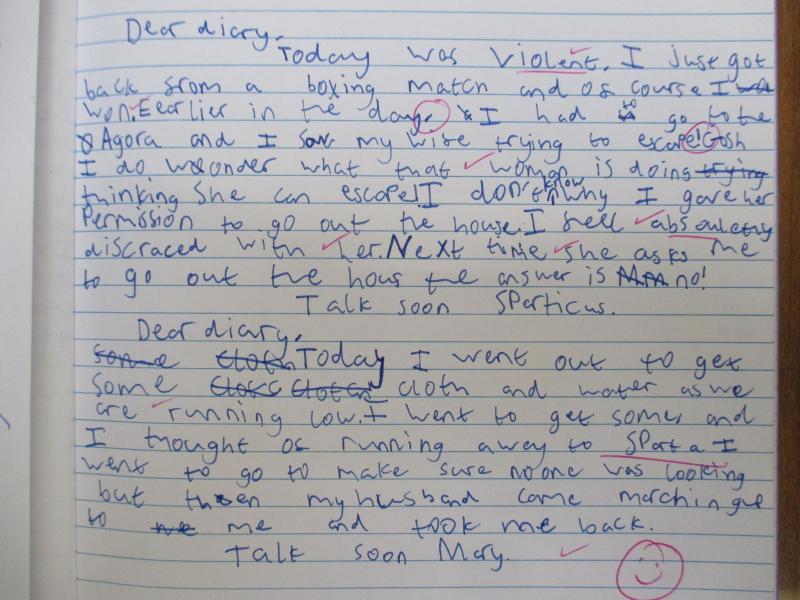 Dear diary.
Today was violent. I just got
back from a boxing match and of course I
won. Eearlier in the day. I had to go to the
Agora and I saw my wife trying to escape! Gosh
I do wonder what that woman is doing trying
thinking she can escape! I don't know why I gave her
Permission to go out the house. I fell absouletly
discraced with her. Next time she asks me
to go out the hous the answer is no!
Talk soon Sparticus.
Dear diary.
some Cloth Today I went out to get
some cloth and water as we
are running low. I went to get some, and
I thought of running away to Sparta I
went to go to make sure no one was looking
but then my husband came marching
to me and took me back.
Talk soon Mary.